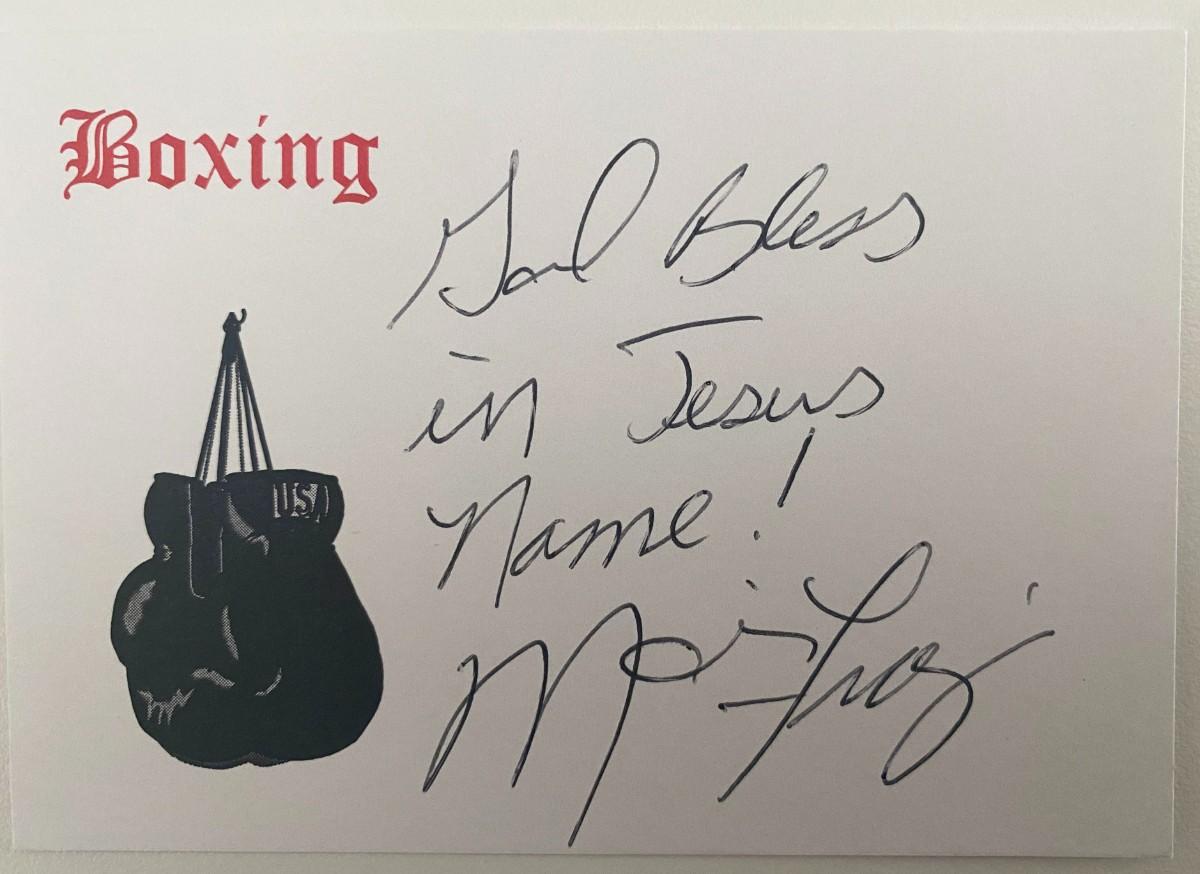 Boxing
USA
God Bless
in Jesus
Name!